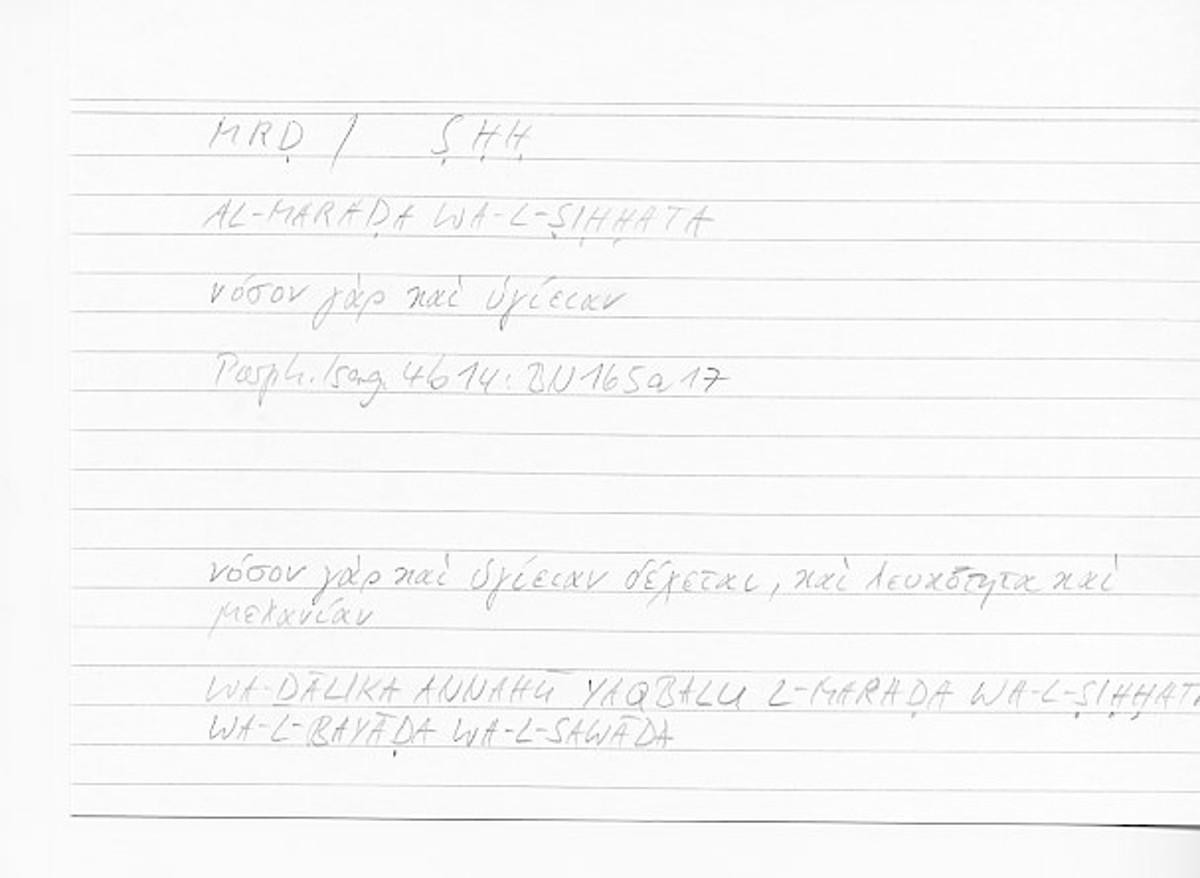 MRḌ / ṢḤḤ
AL-MARAḌA WA-L-ṢIḤḤATA
νόσον γὰρ καὶ ὑγίειαν
Porph. Isag. 4b14: BN165a17
νόσον γὰρ καὶ ὑγίειαν δέχεται, καὶ λευκότητα καὶ
μελανίαν
WA-ḎĀLIKA ANNAHŪ YAQBALU L-MARAḌA WA-L-ṢIḤḤATA
WA-L-BAYĀḌA WA-L-SAWĀDA